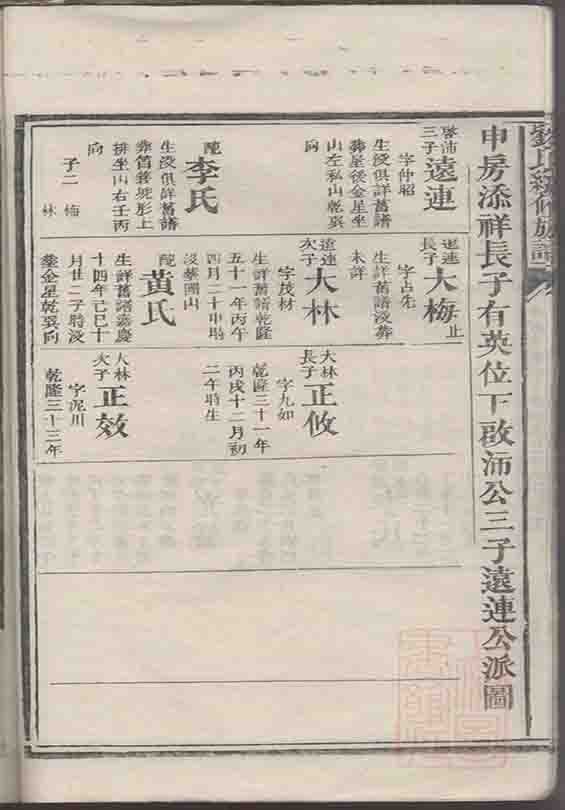 劉氏續修族譜
申房添祥長子有英位下啟沛公三子遠連公派圖
啓沛
三子
遠連
字仲昭
生沒俱詳舊譜
葬屋後金星坐
山左私山乾巽
向
配
李氏
生沒俱詳舊譜
葬舊婆坡形上
排坐山右壬丙
向
子二 梅
林
遠連
長子
大梅
止
字占先
生詳舊譜沒葬
未詳
遠連
次子
大林
字茂材
生詳舊譜乾隆
五十一年丙午
四月二十申時
沒葬團山
配
黃氏
生詳舊譜嘉慶
十四年己巳十
月廿二子時沒
葬金星乾巽向
大林
長子
正攸
字九如
乾隆三十一年
丙戌十二月初
二午時生
大林
次子
正效
字泥川
乾隆三十三年